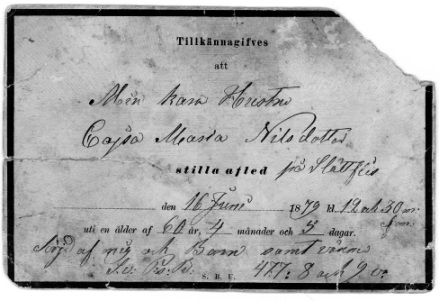 Tillkännagifves
att
Min kära Hustru
Cajsa Maria Nilsdotter
stilla afled på Slättfüs
den 16 Juni 1879 kl. 12 och 30
uti en ålder af 60 år, 4 månader och 5 dagar.
Sörjd af mig och Barn samt vänner
S. v. Ps. B. 477: 8 och 9 v.
S. B. U.